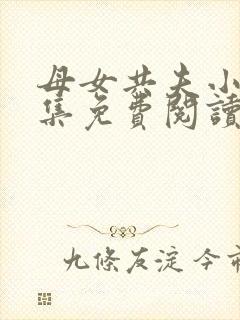 母女共夫小
集免費閱讀
九條友淀 今市